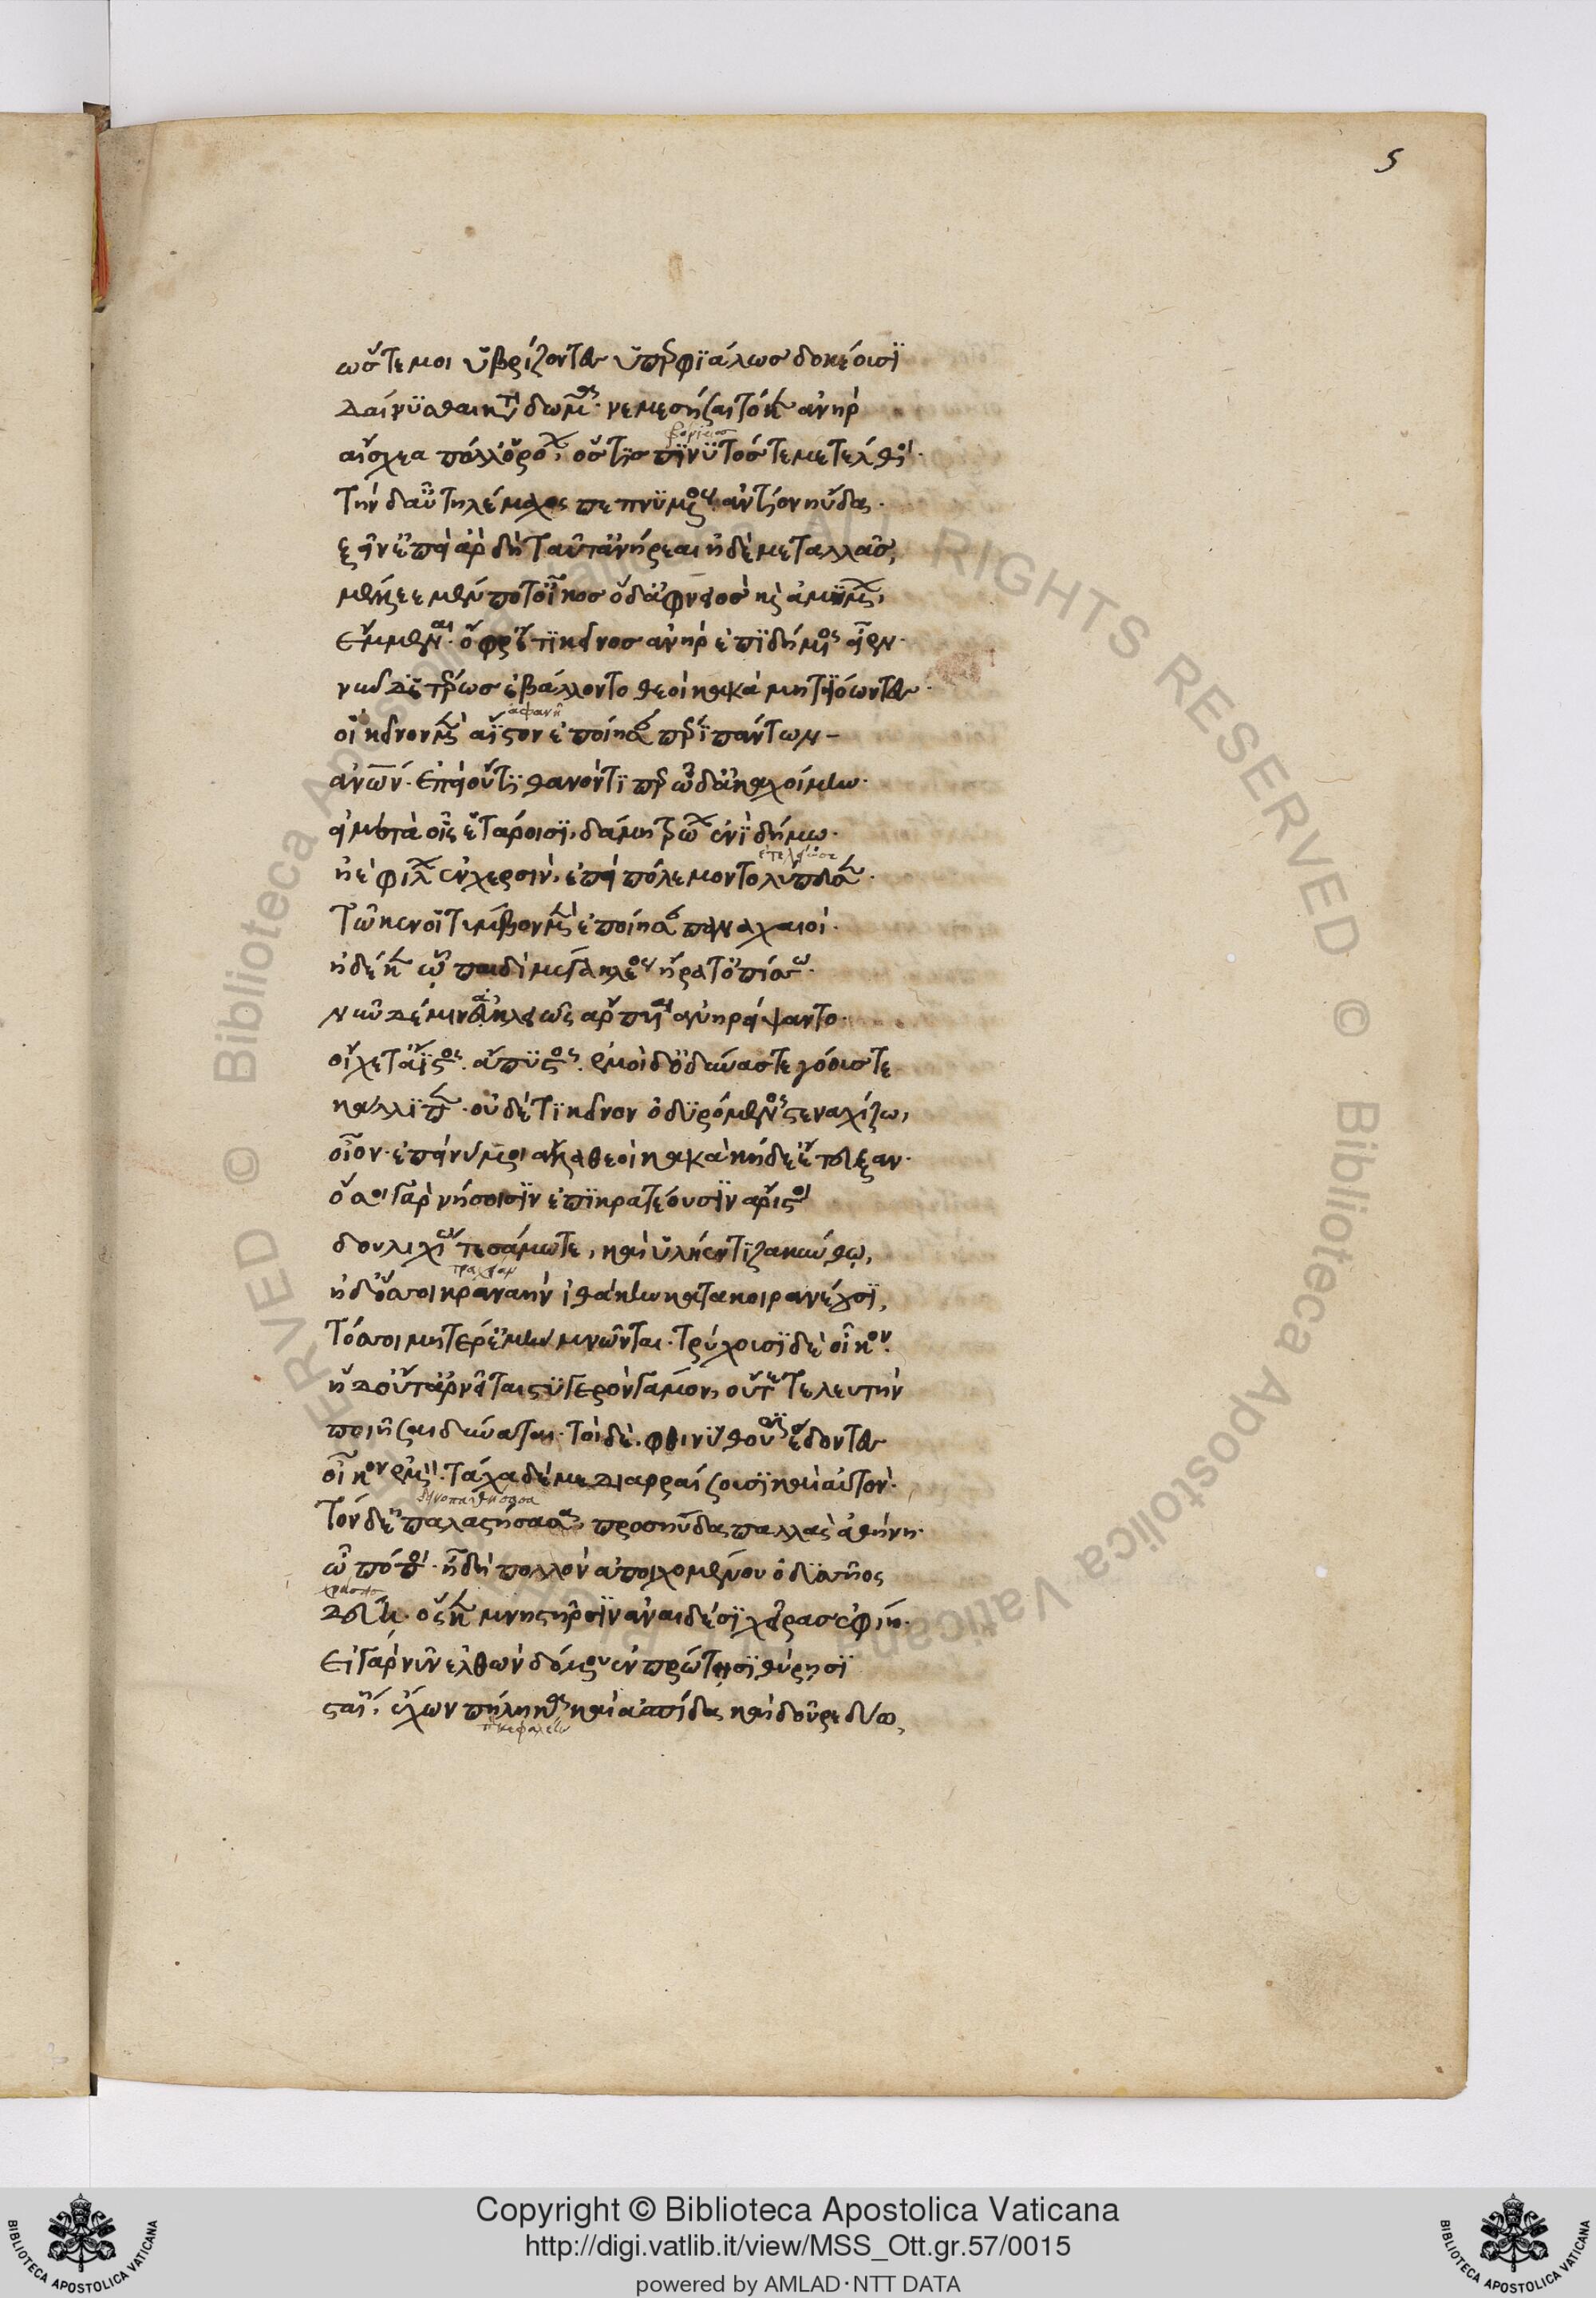 5
ὥστέ μοι ὑβρίζοντες ὑπερφιάλως δοκέουσι
δαίνυσθαι κατὰ δῶμα· νεμεσήσαιτό κεν ἀνὴρ
αἴσχεα πόλλ' ὁρόων, ὅστις πινυτός τε μετέλθοι·
τὴν δ' αὖ τηλέμαχος πεπνυμένος ἀντίον ηὔδα·
ξεῖν' ἐπεὶ ἂρ δὴ ταῦτά μ' ἀνείρεαι ἠδὲ μεταλλᾶς,
μέλλεν μέν ποτ' οἶκος ὅδ' ἀφνειὸς καὶ ἀμύμων,
ἔμμεναι· ὄφρ' ἔτι κεῖνος ἀνὴρ ἐπιδήμιος ἦεν·
νῦν δ' ἑτέρως ἐβάλοντο θεοὶ κακὰ μητιόωντες·
οἳ κεῖνον μὲν ἄϊστον ἐποίησαν περὶ πάντων
ἀνθρώπων· ἐπεὶ οὔ κε θανόντι περ ὧδ' ἀκαχοίμην·
εἰ μετὰ οἷς ἑτάροισι, δάμη τρώων ἐνὶ δήμω·
ἠὲ φίλων ἐν χερσὶν, ἐπεὶ πόλεμον τολύπευσεν·
τῶ κέν οἱ τύμβον μὲν ἐποίησαν παναχαιοί·
ἠδέ κεν ᾧ παιδὶ μέγα κλέος ἤρατ' ὀπίσσω·
νῦν δέ μιν ἀκλειῶς ἅρπυιαι ἀνηρείψαντο·
οἴχετ' ἄϊστος ἄπυστος. ἐμοὶ δ' ὀδύνας τε γόους τε
κάλλιπεν· οὐδέ τι κεῖνον ὀδυρόμενος στεναχίζω,
οἶον· ἐπεί νύ μοι ἄλλα θεοὶ κακὰ κήδε' ἔτευξαν·
ὅσσοι γὰρ νήσοισιν ἐπικρατέουσιν ἄριστοι
δουλιχίω τε σάμω τε, καὶ ὑλήεντι ζακύνθῳ,
ἠδ' ὅσσοι κραναὴν ἰθάκην κάτα κοιρανέουσι,
τόσσοι μητέρ' ἐμὴν μνῶνται· τρύχουσι δὲ οἶκον·
ἡ δ' οὔτ' ἀρνεῖται στυγερὸν γάμον, οὔτε τελευτὴν
ποιῆσαι δύναται· τοὶ δὲ φθινύθουσιν ἔδοντες
οἶκον ἐμόν· τάχα δή με διαρραίσουσι καὶ αὐτόν·
τὸν δ' ἐπαλαστήσασα, προσηύδα παλλὰς ἀθήνη·
ὢ πόποι· ἦ δὴ πολλὸν ἀποιχομένου ὀδυσῆος
δεύῃ· ὅς κεν μνηστῆρσιν ἀναιδέσι χεῖρας ἐφείη·
εἰ γὰρ νῦν ἐλθὼν δόμου ἐν πρώτῃσι θύρῃσι
σταίη, ἔχων πήληκα καὶ ἀσπίδα καὶ δοῦρε δύω,
Copyright © Biblioteca Apostolica Vaticana
http://digi.vatlib.it/view/MSS_Ott.gr.57/0015
powered by AMLAD·NTT DATA